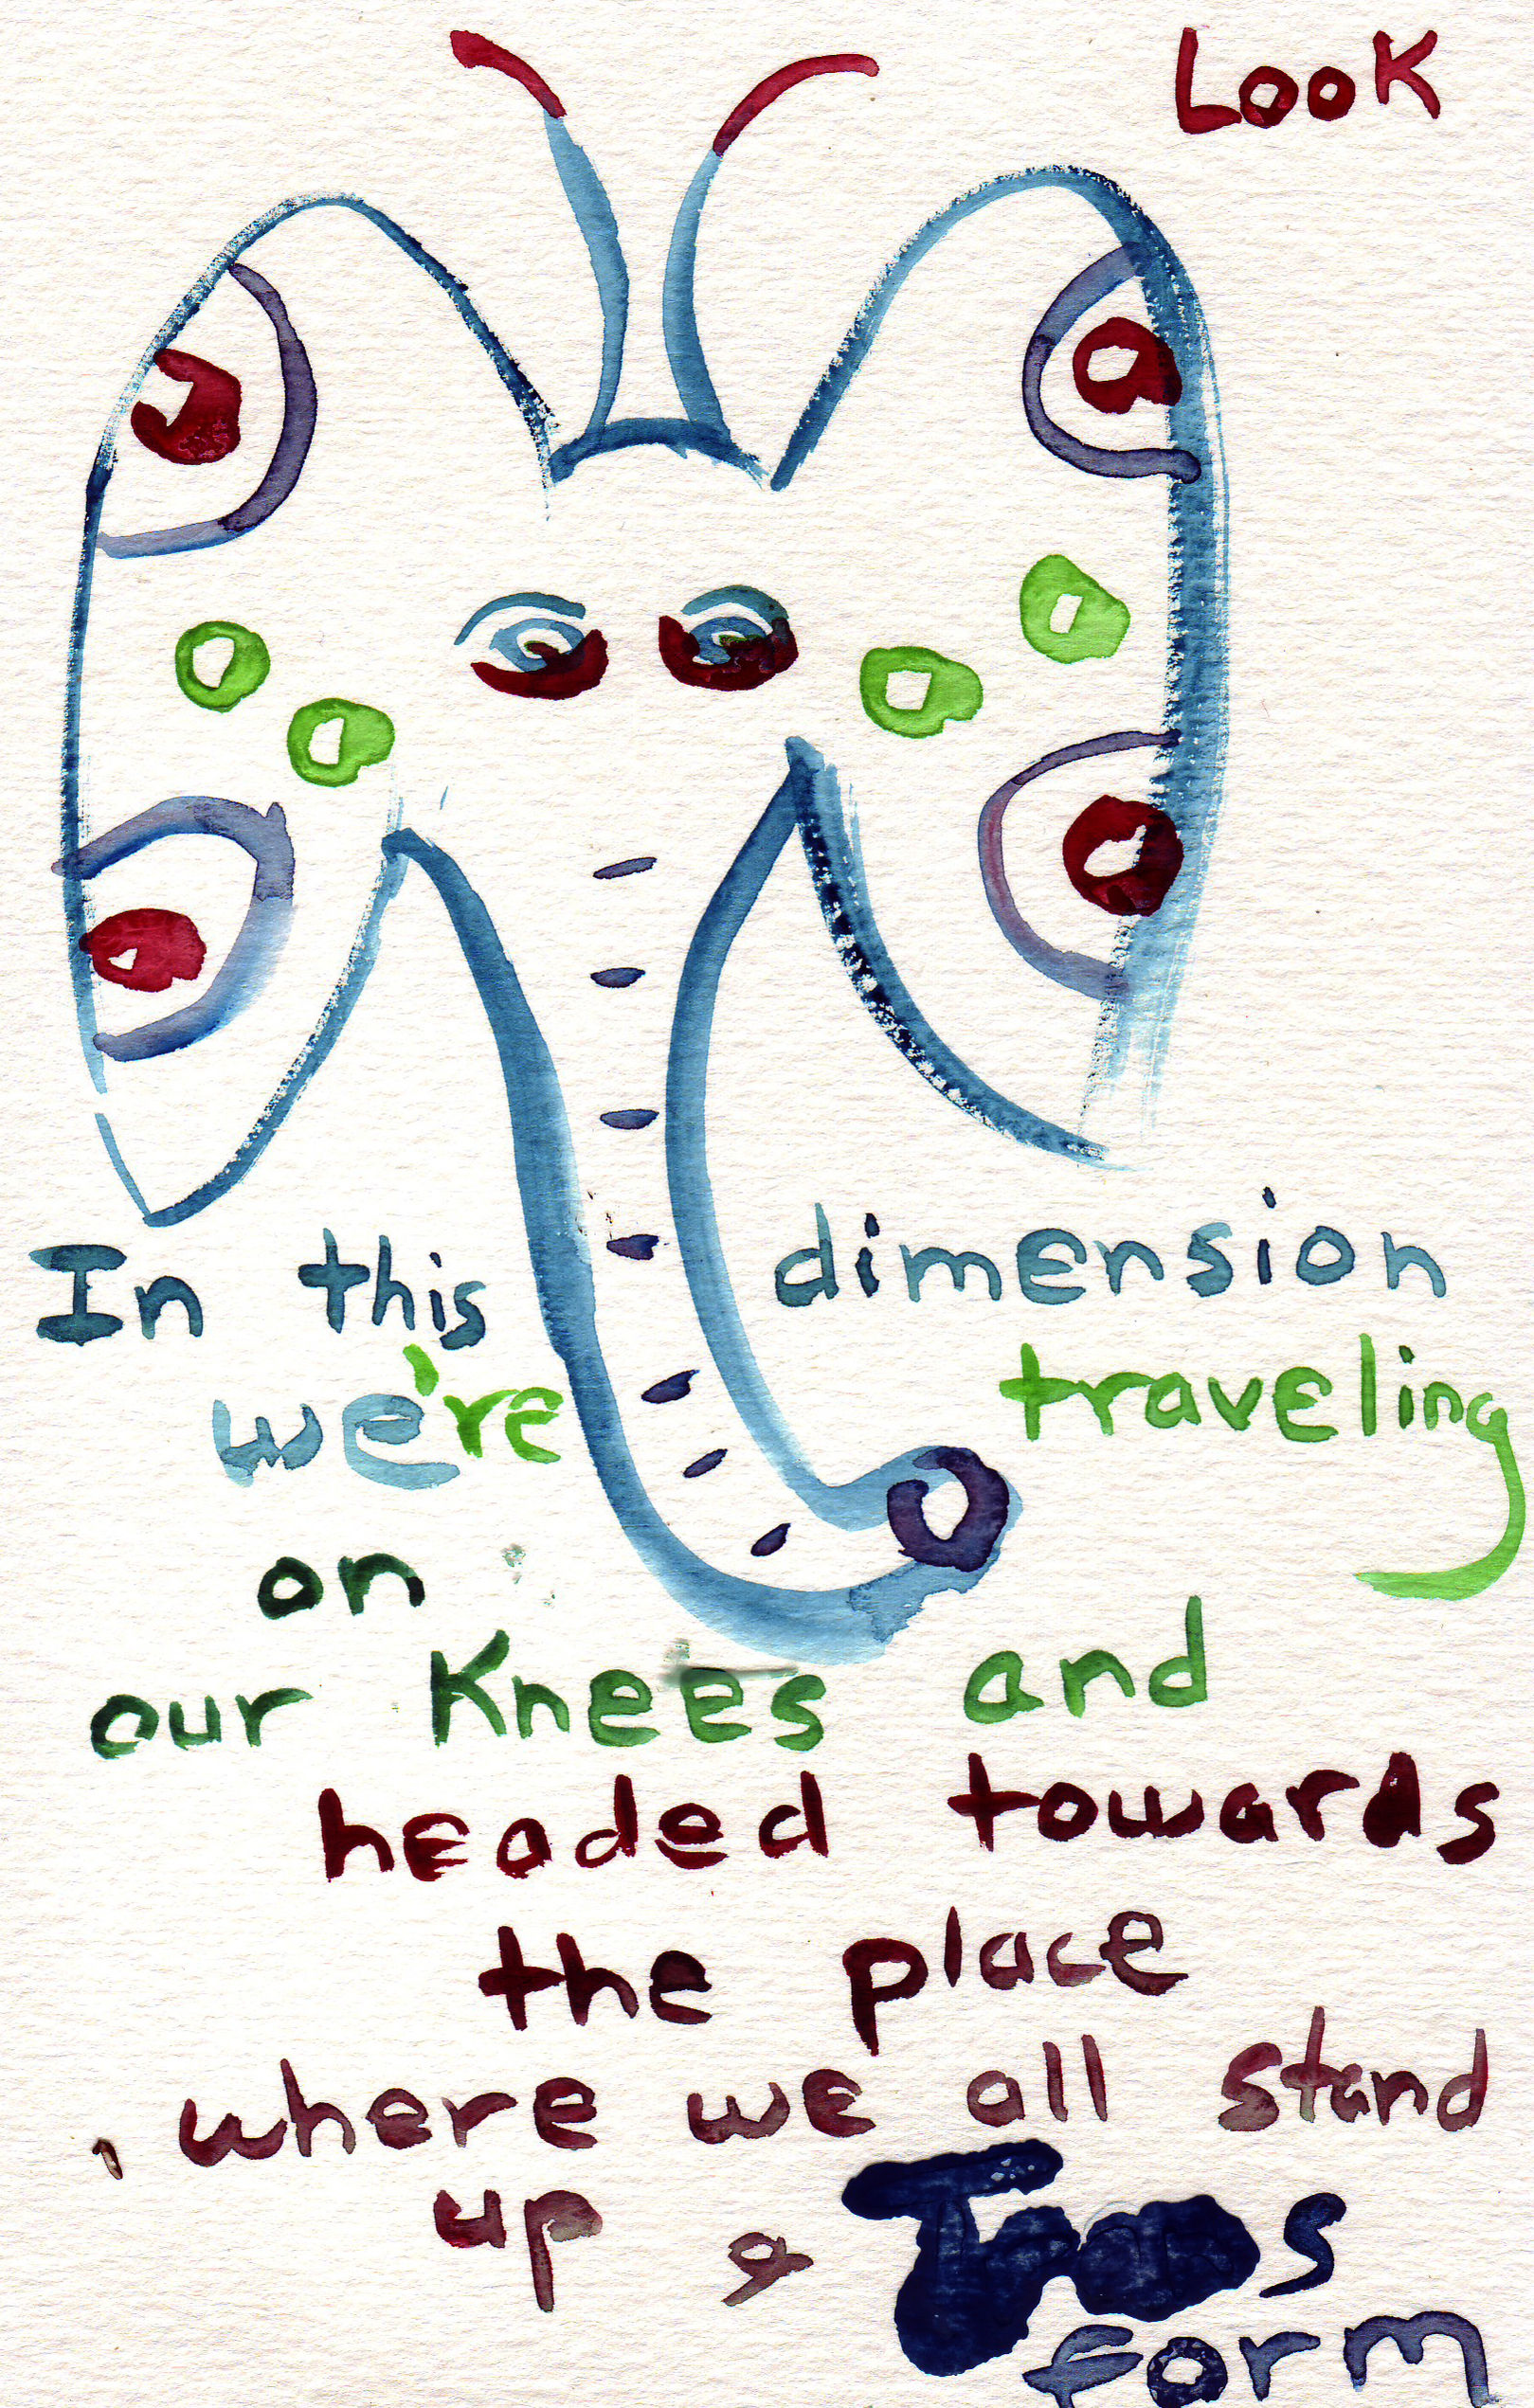 Look
In this dimension
we're traveling
on
our Knees and
headed towards
the place
where we all stand
up &
form